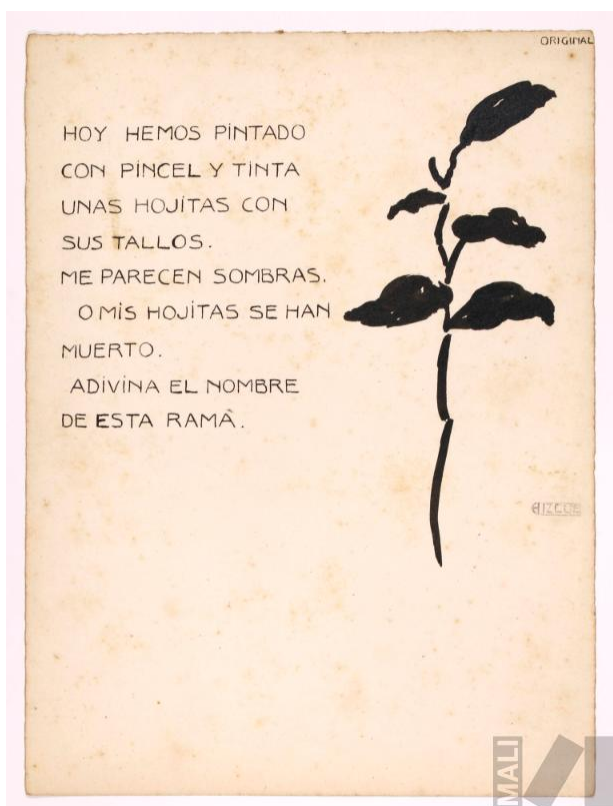 ORIGINAL
HOY HEMOS PINTADO
CON PINCEL Y TINTA
UNAS HOJITAS CON
SUS TALLOS.
ME PARECEN SOMBRAS.
O MIS HOJITAS SE HAN
MUERTO.
ADIVINA EL NOMBRE
DE ESTA RAMÀ.
MALI